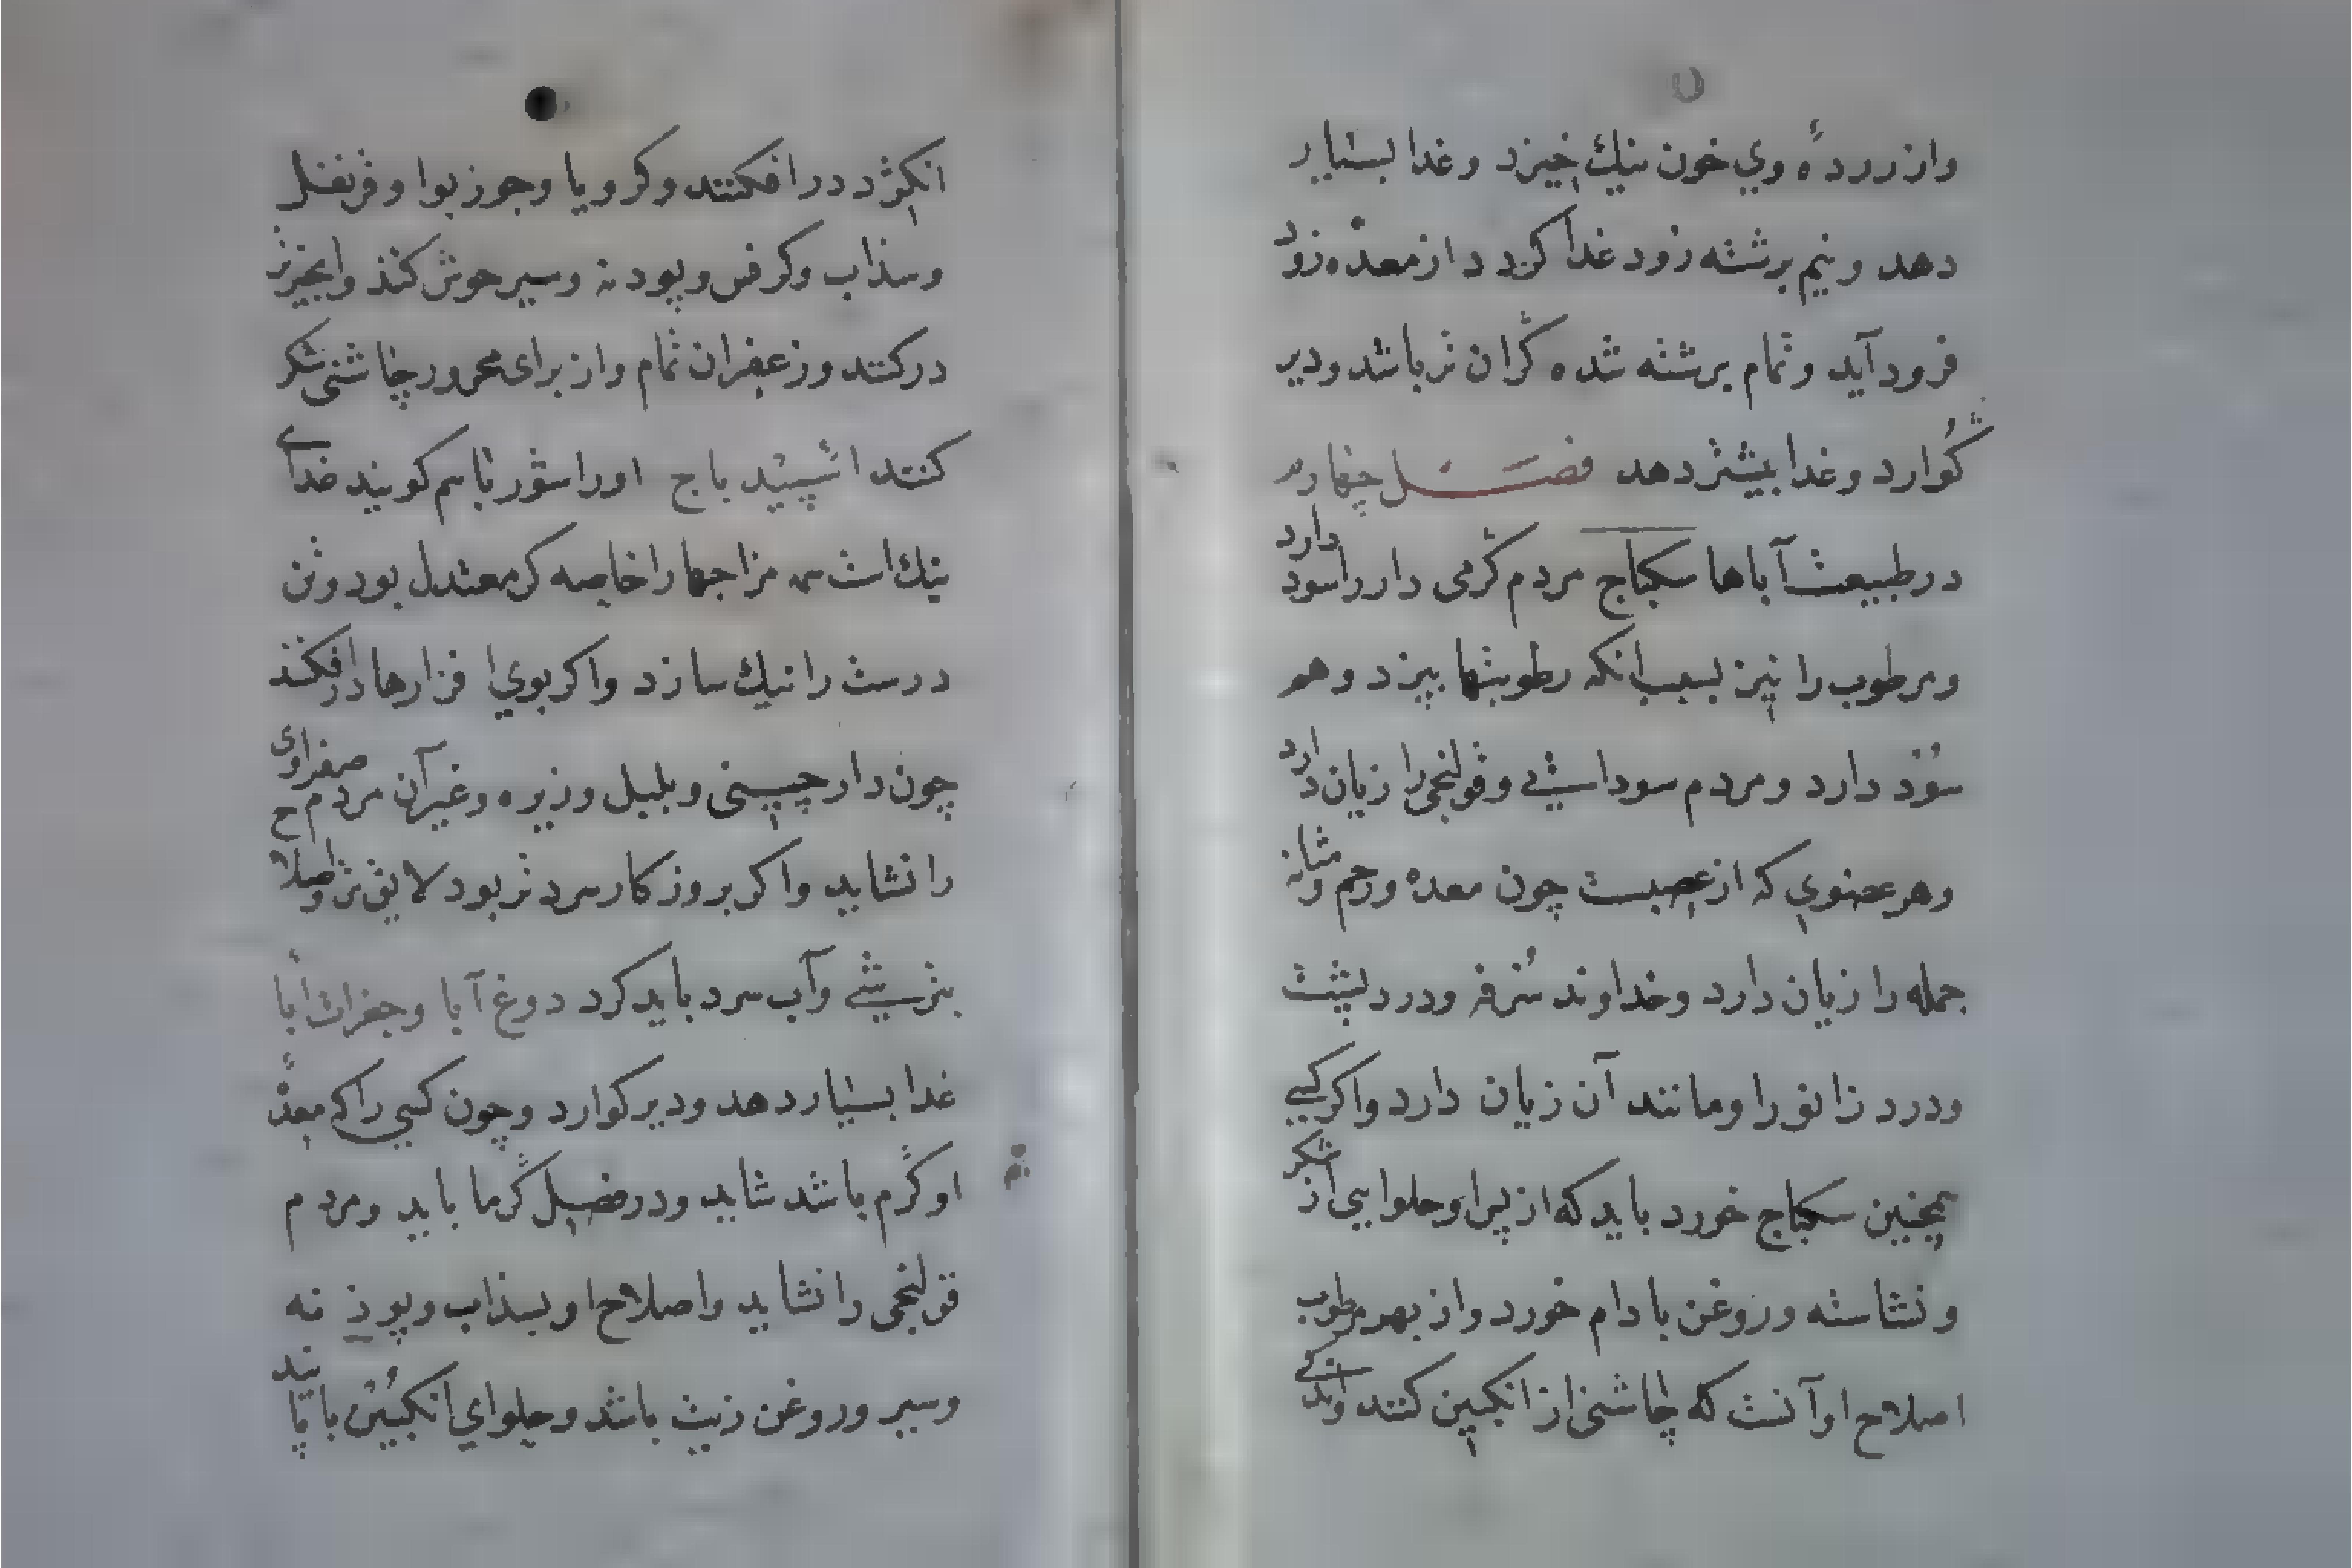 وازررده وي خون نيك خيزد وغدا بسيار
دهد ونيم برشته زود غدا كردد از معده زود
فرود آيد وتمام برشته شده گران تر باشد ودير
گوارد وغدا بيشتر دهد فصل چهارم
در طبيعت آباها سكباج مردم گرمی دار را سود دارد
ومرطوب را نيز بسبب انكه رطوبتها بپزد وهم
سود دارد ومردم سودا و قولنجی را زيان دارد
وهر عضوي كه از عصبست چون معده ورحم ومثانه
جمله را زيان دارد وخداوند سرفه ودرد پشت
ودرد زانو را ومانند آن زيان دارد واكر كسی
همچنين سكباج خورد بايد كه از پس او حلوايی از شكر
ونشاسته وروغن بادام خورد واز بهر مرطوب
اصلاح او آنست كه چاشنی از انكبين كنند واندكی
انكژد در افكنند وكرويا وجوز بوا وقرنفل
وسذاب وكرفس وپودنه وسير خوش كند وانجيز
در كنند وزعفران تمام واز برای محرور چاشنی شكر
كنند اسپيد باج اورا شوربا هم كويند غدای
نيك است همه مزاجها را خاصه كه معتدل بود وتن
درست را نيك سازد واكر بوي افزارها در افكنند
چون دار چينی وپلپل وزيره وغير آن مردم صفراوی
را نشايد واكر بروزكار سرد تر بود لايق تر واصلاح
بترشی وآب سرد بايد كرد دوغ آبا وجغرات آبا
غدا بسيار دهد ودير كوارد وچون كسی را كه معدۀ
او گرم باشد شايد ودر فصل گرما بايد ومردم
قولنجی را نشايد واصلاح او بسذاب وپوذنه
وسير وروغن زيت باشد وحلواي انكبين با پانيد